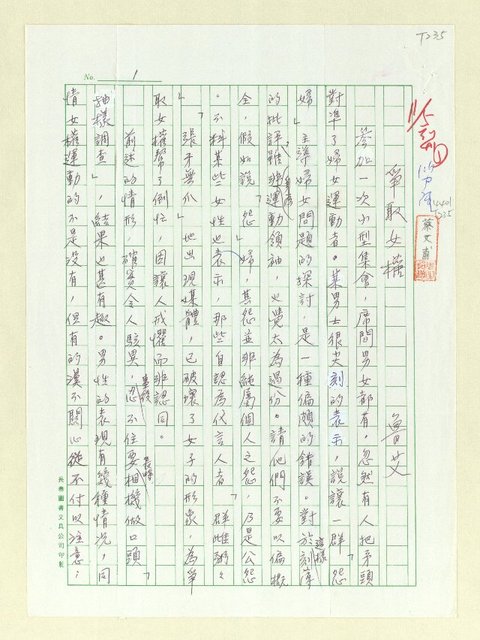 T235
No. 1
爭取女權
魯艾
參加一次小型集會，席間男女都有，忽然有人把矛頭
對準了婦女運動者。某男士很尖刻的表示，說讓一群「怨
婦」主導婦女問題的探討，是一種偏頗的錯誤。對於這樣刻薄
的批評，雖非運動領袖，也覺太為過份。請他們不要以偏概
全，假如說「怨」婦，其怨並非純屬個人之怨，乃是公怨
。不料某些女性也表示，那些自認為代言人者「群雌粥粥
」「張牙舞爪」地出現媒體，已破壞了女子的形象，為爭
取女權幫了倒忙，因讓人戒懼而非認同。
前述的情形，確實令人駭異，忍不住要相機做口頭「
抽樣調查」，結果也甚有趣。男性的表現有幾種情況，同
情女權運動的不是沒有，但有的漠不關心從不付以注意；
蔡文甫
長春圖書文具公司印製